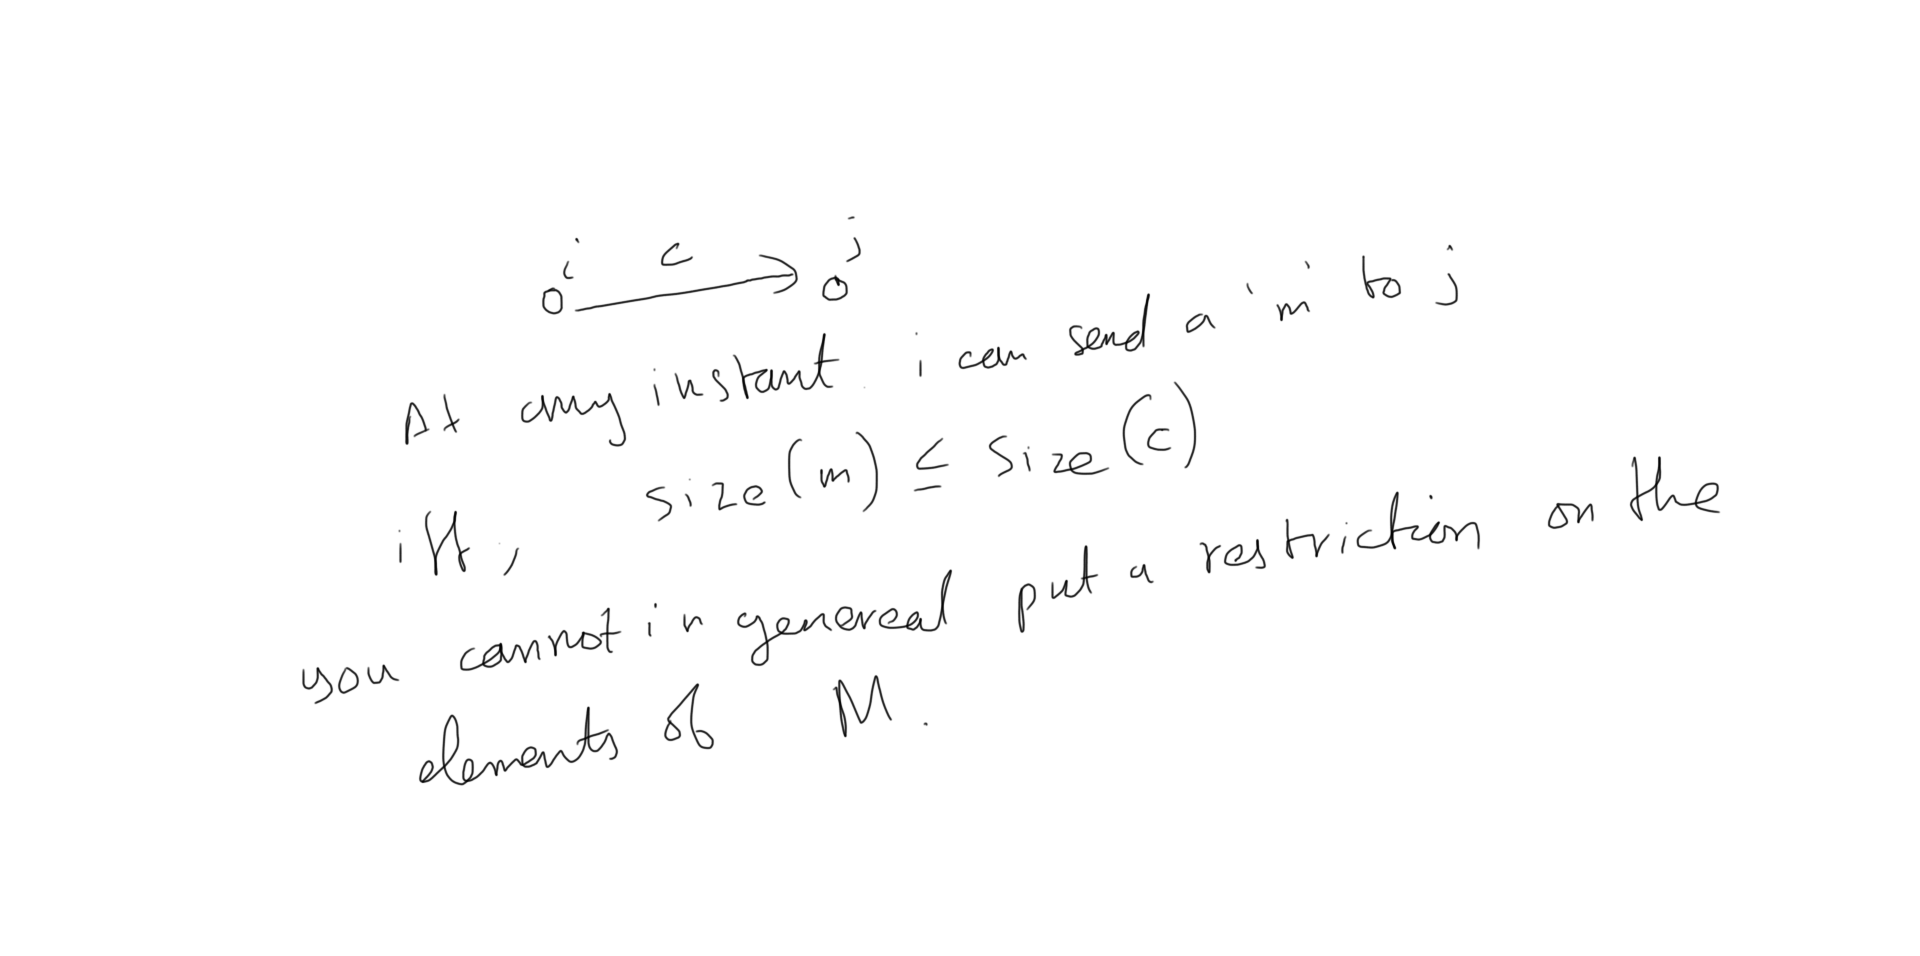 i c j
At any instant i can send a 'm' to j
iff, size(m) ≤ size(c)
you cannot in genereal put a restriction on the
elements of M.